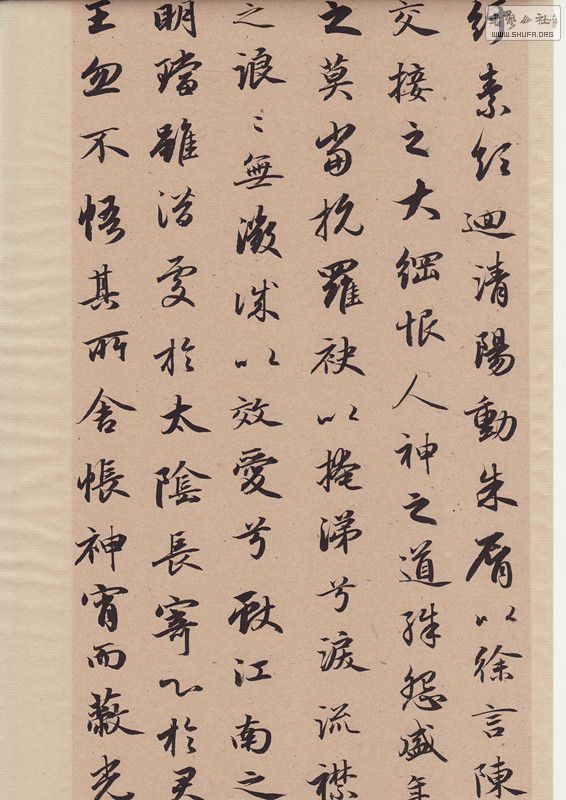 紆素領迴清陽動朱脣以徐言陳
交接之大綱恨人神之道殊怨盛年
之莫當抗羅袂以掩涕兮淚流襟
之浪〻無微誠以效愛兮獻江南之
明璫雖潛處於太陰長寄心於君
王忽不悟其所舍悵神宵而蔽光
書藝公社
WWW.SHUFA.ORG